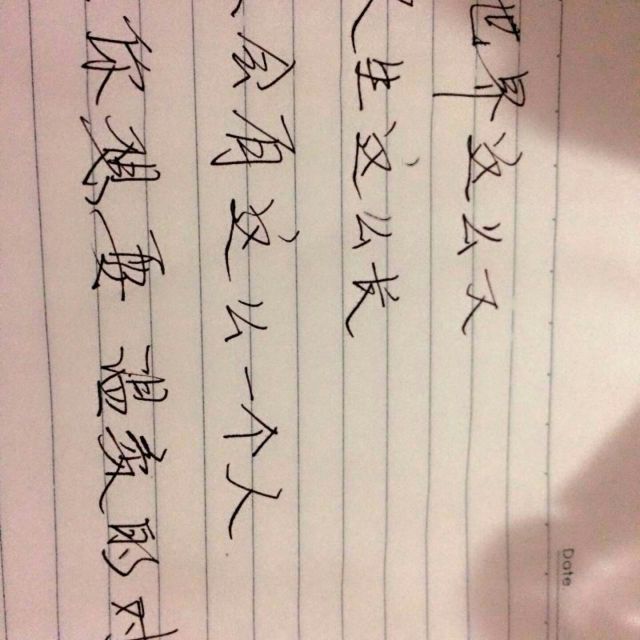 Date
世界这么大
生这么长
会有这么一个人
你想要温柔的对